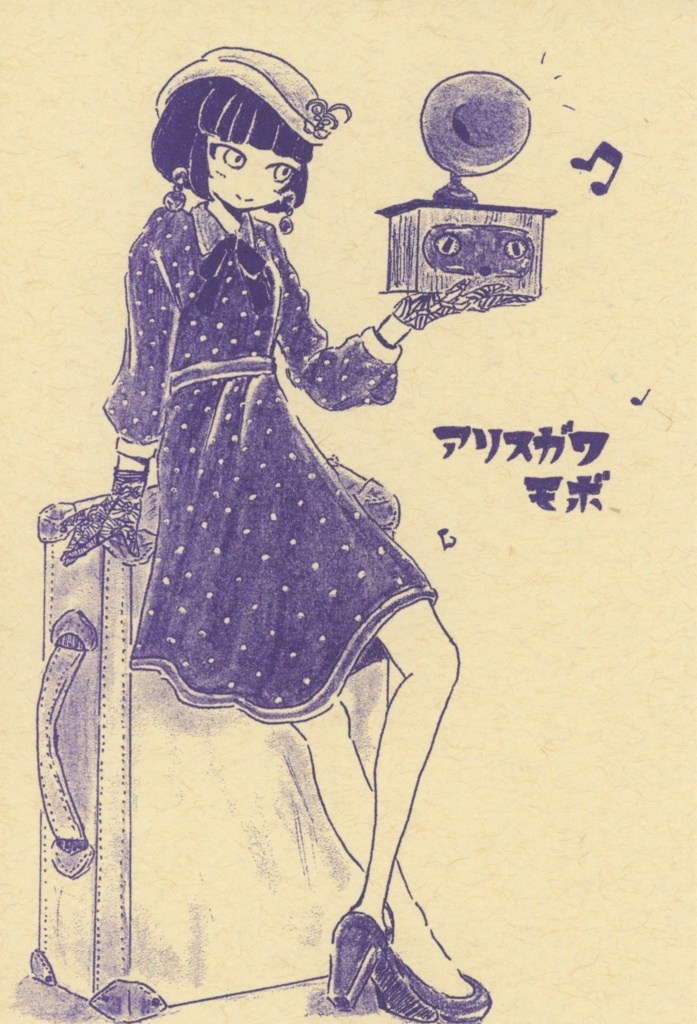 アリスガワ
モボ